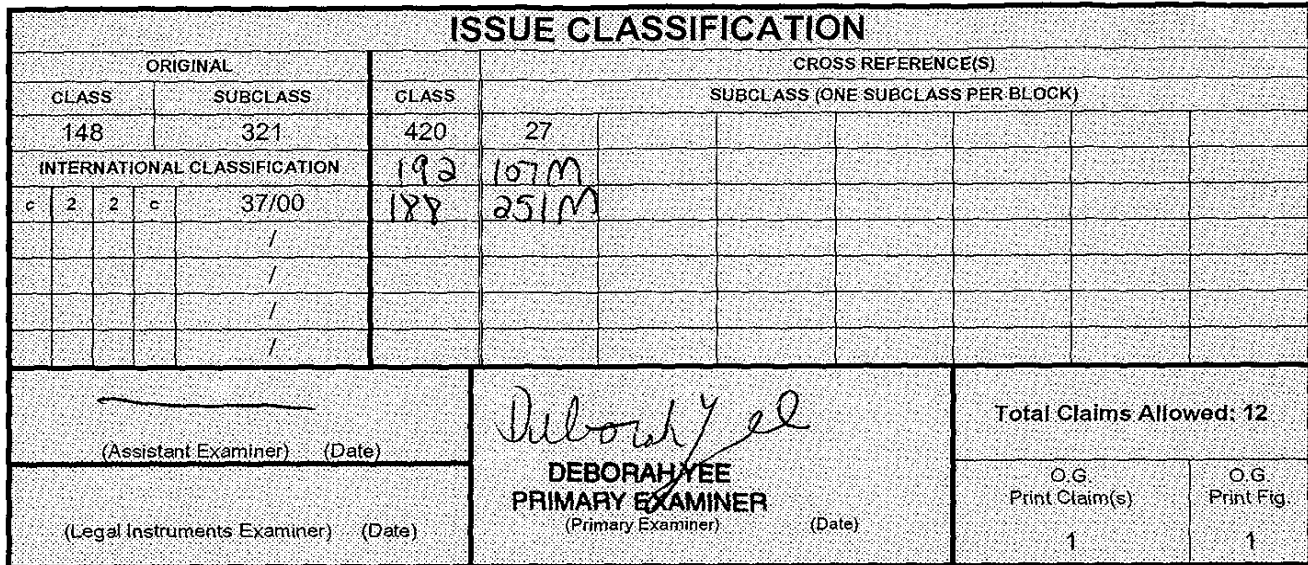 ISSUE CLASSIFICATION
ORIGINAL CROSS REFERENCE(S)
CLASS SUBCLASS CLASS SUBCLASS (ONE SUBCLASS PER BLOCK)
148 321 420 27
INTERNATIONAL CLASSIFICATION 192 107M
c 2 2 c 37/00 188 251M
/
/
/
/
Deborah Yee
(Assistant Examiner) (Date)
DEBORAH YEE
PRIMARY EXAMINER
(Primary Examiner) (Date)
(Legal Instruments Examiner) (Date)
Total Claims Allowed: 12
O.G. Print Claim(s) O.G. Print Fig.
1 1